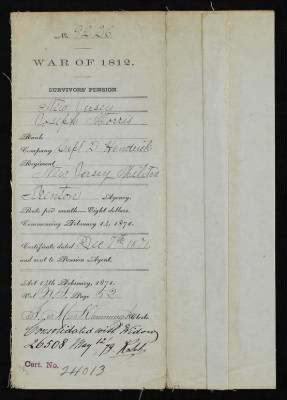 No. 9226
WAR OF 1812.
SURVIVORS' PENSION
New Jersey
Joseph Morris
Rank
Company Capt D. Hendrick
Regiment
New Jersey Militia
Trenton Agency.
Rate per month—Eight dollars.
Commencing February 14, 1871.
Certificate dated Dec 7th 1871
and sent to Pension Agent.
Act 14th February, 1871.
Page 52
Clerk.
Consolidated with Widow
26508 May 12 '79
Cert. No. 24013